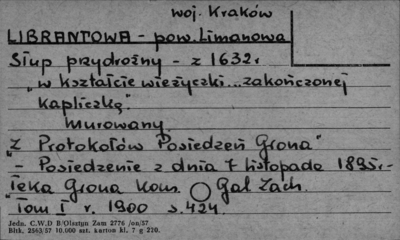 woj. Kraków
LIBRANTOWA - pow. Limanowa
Słup przydrożny - z 1632r.
"w kształcie wieżyczki... zakończonej
kapliczką."
murowany
"Z Protokołów Posiedzeń Grona"
- Posiedzenie z dnia 7 listopada 1895r.-
Teka Grona Kons. Gal Zach.
Tom I r. 1900 s. 424.
Jedn. C.W.D B/Olsztyn Zam 2776 /on/57
Bltk. 2563/57 10.000 szt. karton kl. 7 g 220.